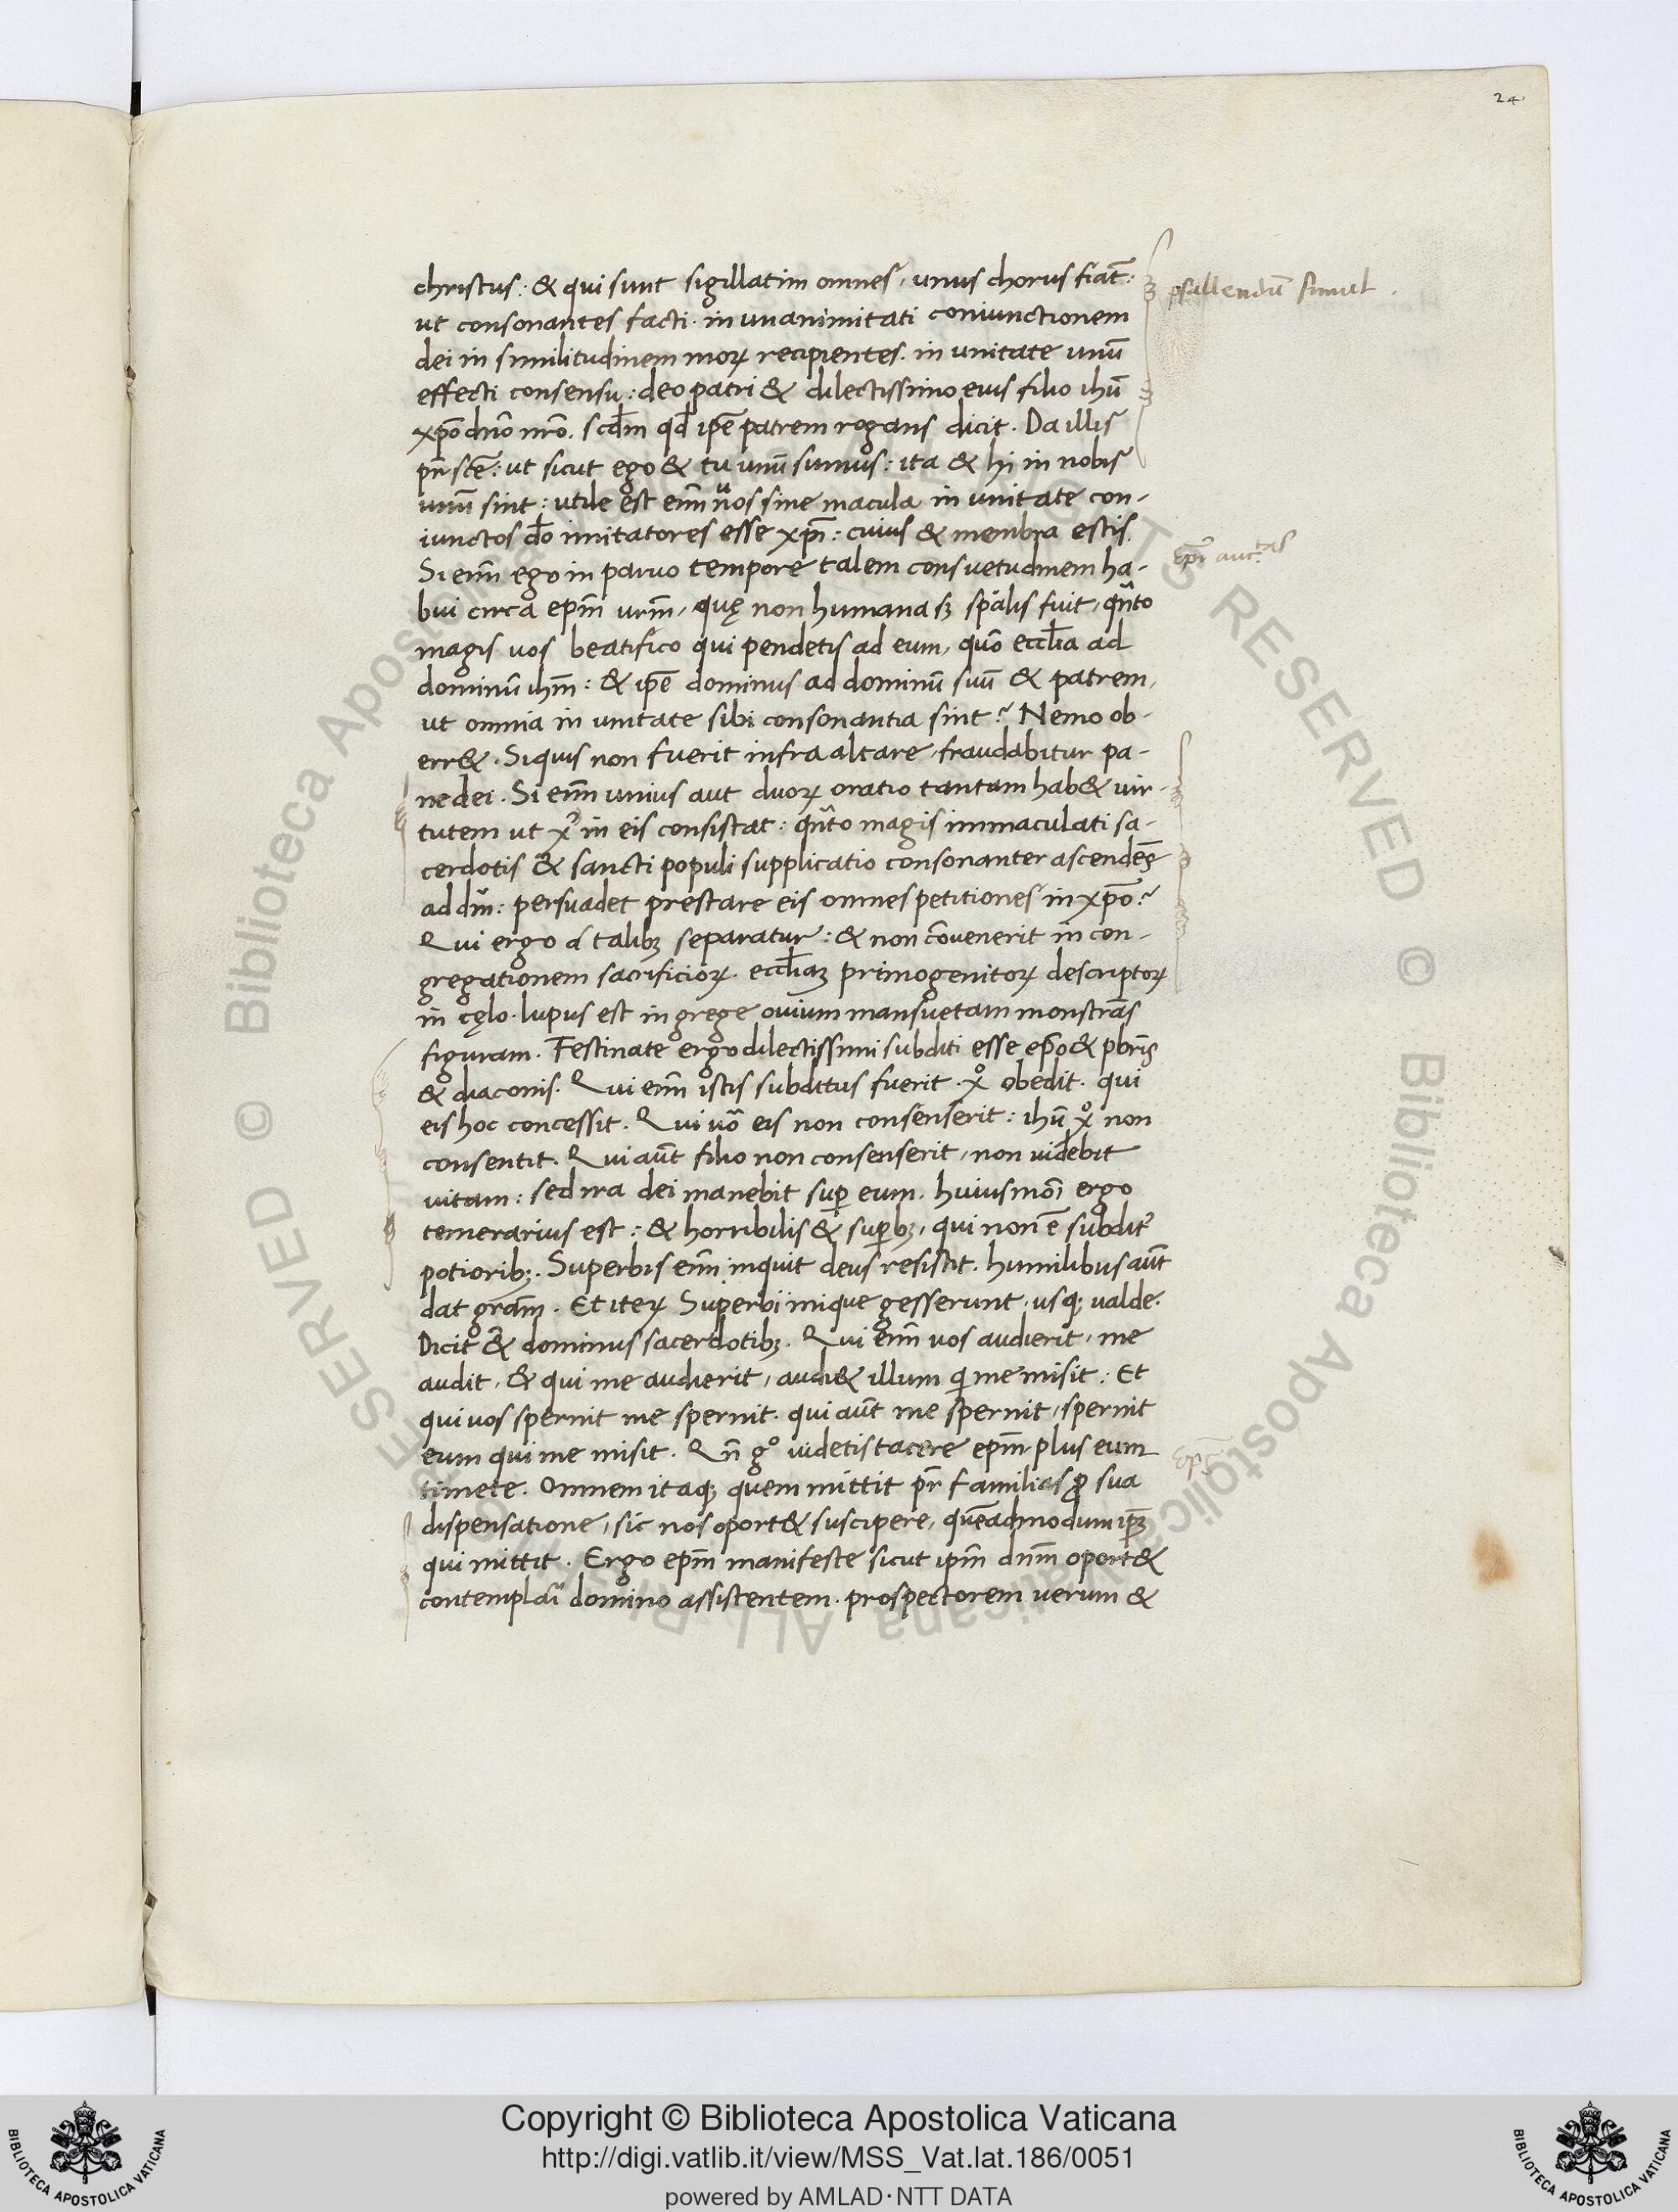 24
christus: & qui sunt sigillatim omnes, unus chorus fiat̄:
psallendū simul.
ut consonantes facti. in unanimitati coniunctionem
dei in similitudinem moꝝ recipientes. in unitate unū
effecti consensu: deo patri & dilectissimo eius filio ihū
xp̄o dn̄o nr̄o. scd̄m qd̄ ip̄e patrem rogans dicit. Da illis
pr̄ stē: ut sicut ego & tu unū sumus: ita & hi in nobis
unū sint: utile est enī uos sine macula in unitate con-
iunctos dō imitatores esse xp̄i: cuius & menbra estis.
Si enī ego in paruo tempore talem consuetudinem ha-
ep̄i auc.tas
bui circa ep̄m urm̄, quę non humana sꝫ sp̄alis fuit, qn̄to
magis uos beatifico qui pendetis ad eum, quō eccl̄ia ad
dominū ihm̄: & ip̄e dominus ad dominū suū & patrem,
ut omnia in unitate sibi consonantia sint? Nemo ob-
err&. Siquis non fuerit infra altare, fraudabitur pa-
ne dei. Si enī unius aut duoꝝ oratio tantam hab& uir-
tutem ut xp̄s in eis consistat: qn̄to magis immaculati sa-
cerdotis & sancti populi supplicatio consonanter ascendēs
ad dm̄: persuadet prestare eis omnes petitiones in xp̄o?
Qui ergo a talibꝫ separatur: & non cōvenerit in con-
gregationem sacrificioꝝ. eccl̄iaꝫ primogenitoꝝ descriptoꝝ
in cęlo. lupus est in grege ouium mansuetam monstrās
figuram. Festinate ergo dilectissimi subditi esse ep̄o & pbr̄is
& diaconis. Qui enī istis subditus fuerit. xº obedit. qui
eis hoc concessit. Qui uō eis non consenserit: ihū xº non
consentit. Qui aūt filio non consenserit, non uidebit
uitam: sed ira dei manebit suꝑ eum. huiusmōi ergo
temerarius est: & horribilis & suꝑbꝫ, qui non ē subdit᾽
potioribꝫ. Superbis enī inquit deus resistit. humilibus aūt
dat grām. Et iteꝝ Superbi inique gesserunt. usqꝫ ualde.
Dicit & dominus sacerdotibꝫ. Qui enī uos audierit, me
audit, & qui me audierit, audi& illum qi me misit: Et
qui uos spernit me spernit. qui aūt me spernit, spernit
eum qui me misit. Qn̄ gº uidetis tacere ep̄m plus eum
ep̄s
timete. Omnem itaqꝫ quem mittit pr̄ familias ꝓ sua
dispensatione, sic nos oport& suscipere, quēadmodum ip̄ꝫ
qui mittit. Ergo ep̄m manifeste sicut ipm̄ dnm̄ oport&
contemplari domino assistentem. prospectorem uerum &
Copyright © Biblioteca Apostolica Vaticana
http://digi.vatlib.it/view/MSS_Vat.lat.186/0051
powered by AMLAD·NTT DATA